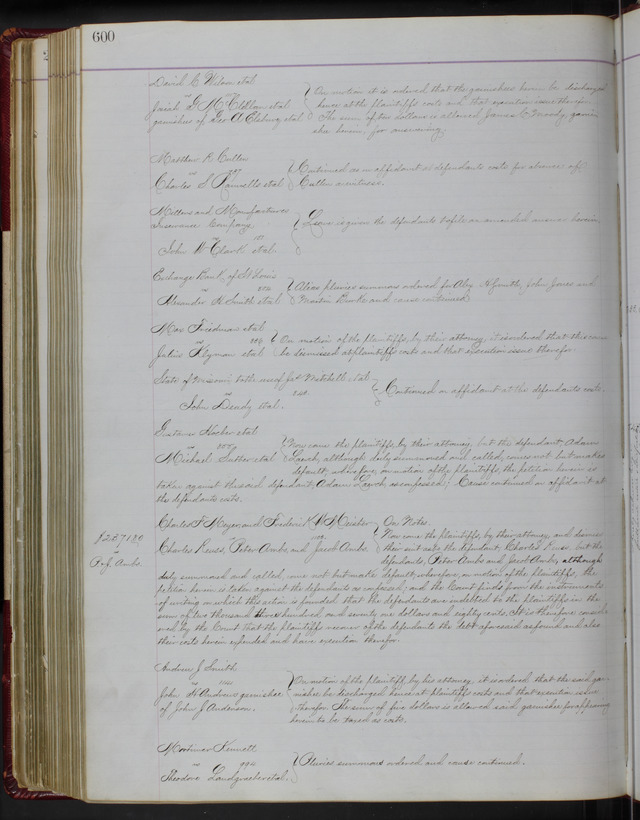 600
David C Wilson etal
vs
Josiah G McClellan etal
garnishee of Geo A Elsburg etal
On motion it is ordered that the garnishees herein be discharged
hence at the plaintiffs costs and that execution issue therefor.
The sum of ten dollars is allowed James C Moody, garni
shee herein, for answering.
Matthew R Cullen
vs
Charles S Rannells etal
Continued on affidavit at defendants costs for absence of
Cullen a witness.
Millers and Manufacturers
Insurance Company
vs
John W Clark etal
Leave is given the defendants to file an amended answer herein.
Exchange Bank of St Louis
vs
Alexander H Smith etal
Alias pluries summons ordered for Alex H Smith, John Jones and
Martin Burke and cause continued
Max Friedman etal
vs
Julius Hyman etal
On motion of the plaintiffs, by their attorney, it is ordered that this cause
be dismissed at plaintiffs costs and that execution issue therefor
State of Missouri to the use of Jas Mitchell etal
vs
John Dendy etal.
Continued on affidavit at the defendants costs.
Gustavus Hocker etal
vs
Michael Suther etal
Now come the plaintiffs, by their attorney, but the defendant, Adam
Lerch, although duly summoned and called, comes not but makes
default; wherefore, on motion of the plaintiffs, the petition herein is
taken against the said defendant, Adam Lerch as confessed: Cause continued on affidavit at
the defendants costs.
$2371 80
vs
P & J. Ambs.
Charles F Meyer and Frederick W Meister
vs
Charles Reuss, Peter Ambs, and Jacob Ambs
On Notes
Now come the plaintiffs, by their attorney and dismiss
their suit as to the defendant, Charles Reuss, but the
defendants, Peter Ambs and Jacob Ambs, although
duly summoned and called, come not but make default; wherefore, on motion of the plaintiffs, the
petition herein is taken against the defendants as confessed; and the Court finds from the instruments
of writing on which this action is founded that the defendants are indebted to the plaintiffs in the
sum of two thousand three hundred and seventy one dollars and eighty cents. It is therefore consid
ered by the Court that the plaintiffs recover of the defendants the debt aforesaid as found and also
their costs herein expended and have execution therefor.
Andrew J Smith
vs
John H Andrews garnishee
of John J Anderson.
On motion of the plaintiff, by his attorney, it is ordered that the said gar
nishee be discharged hence at plaintiffs costs and that execution issue
therefor. The sum of five dollars is allowed said garnishee for appearing
herein to be taxed as costs.
Mortimer Kennett
vs
Theodore Landgraeber etal.
Pluries summons ordered and cause continued.